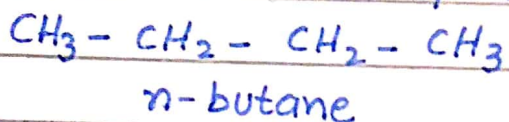 CH₃ - CH₂ - CH₂ - CH₃
n-butane